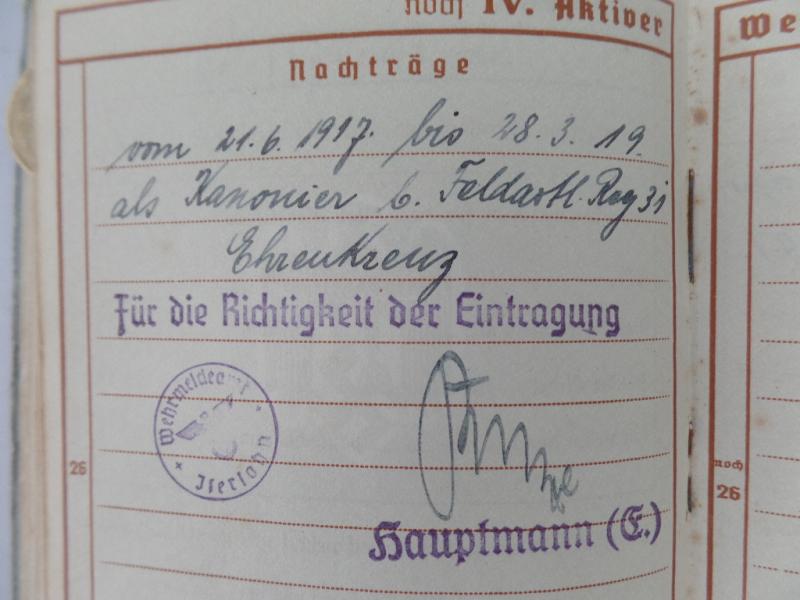 noch IV. Aktiver
We
Nachträge
vom 21.6.1917. bis 28.3.19.
als Kanonier b. Feldartl. Reg 31
Ehrenkreuz
Für die Richtigkeit der Eintragung
Wehrmeldeamt
Iserlohn
26
noch
26
Hauptmann (E.)